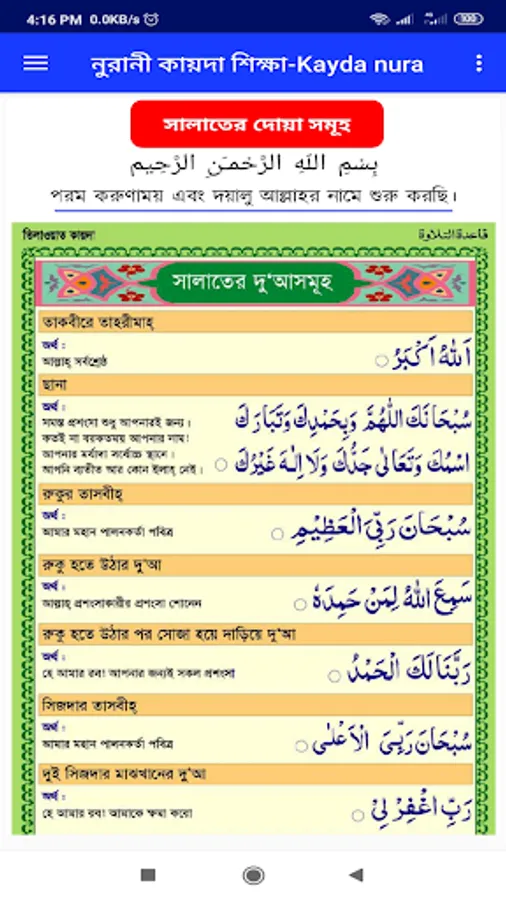 4:16 PM 0.0KB/s
নুরানী কায়দা শিক্ষা-Kayda nura
সালাতের দোয়া সমূহ
بِسْمِ اللهِ الرَّحْمـَنِ الرَّحِيمِ
পরম করুণাময় এবং দয়ালু আল্লাহর নামে শুরু করছি।
তিলাওয়াত কায়দা
قاعدة التلاوة
সালাতের দু'আসমূহ
তাকবীরে তাহরীমাহ্
অর্থ :
আল্লাহ্ সর্বশ্রেষ্ঠ
اَللهُ اَكْبَرُ
ছানা
অর্থ :
সমস্ত প্রশংসা শুধু আপনারই জন্য।
কতই না বরকতময় আপনার নাম!
আপনার মর্যাদা সর্বোচ্চ স্থানে।
আপনি ব্যতীত আর কোন ইলাহ্ নেই।
سُبْحَانَكَ اللّٰهُمَّ وَبِحَمْدِكَ وَتَبَارَكَ
اسْمُكَ وَتَعَالٰى جَدُّكَ وَلَا اِلٰهَ غَيْرُكَ
রুকুর তাসবীহ্
অর্থ :
আমার মহান পালনকর্তা পবিত্র
سُبْحَانَ رَبِّيَ الْعَظِيْمِ
রুকু হতে উঠার দু'আ
অর্থ :
আল্লাহ্ প্রশংসাকারীর প্রশংসা শোনেন
سَمِعَ اللهُ لِمَنْ حَمِدَهٗ
রুকু হতে উঠার পর সোজা হয়ে দাড়িয়ে দু'আ
অর্থ :
হে আমার রব! আপনার জন্যই সকল প্রশংসা
رَبَّنَا لَكَ الْحَمْدُ
সিজদার তাসবীহ্
অর্থ :
আমার মহান পালনকর্তা পবিত্র
سُبْحَانَ رَبِّيَ الْاَعْلٰى
দুই সিজদার মাঝখানের দু'আ
অর্থ :
হে আমার রব! আমাকে ক্ষমা করো
رَبِّ اغْفِرْ لِيْ